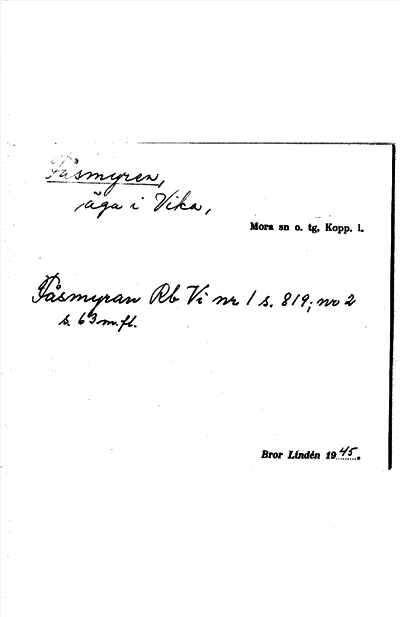 Påsmyren,
äga i Vika,
Mora sn o. tg, Kopp. l.
Påsmyran Rb Vi nr 1 s. 819; nr 2
s. 63 m.fl.
Bror Lindén 1945.